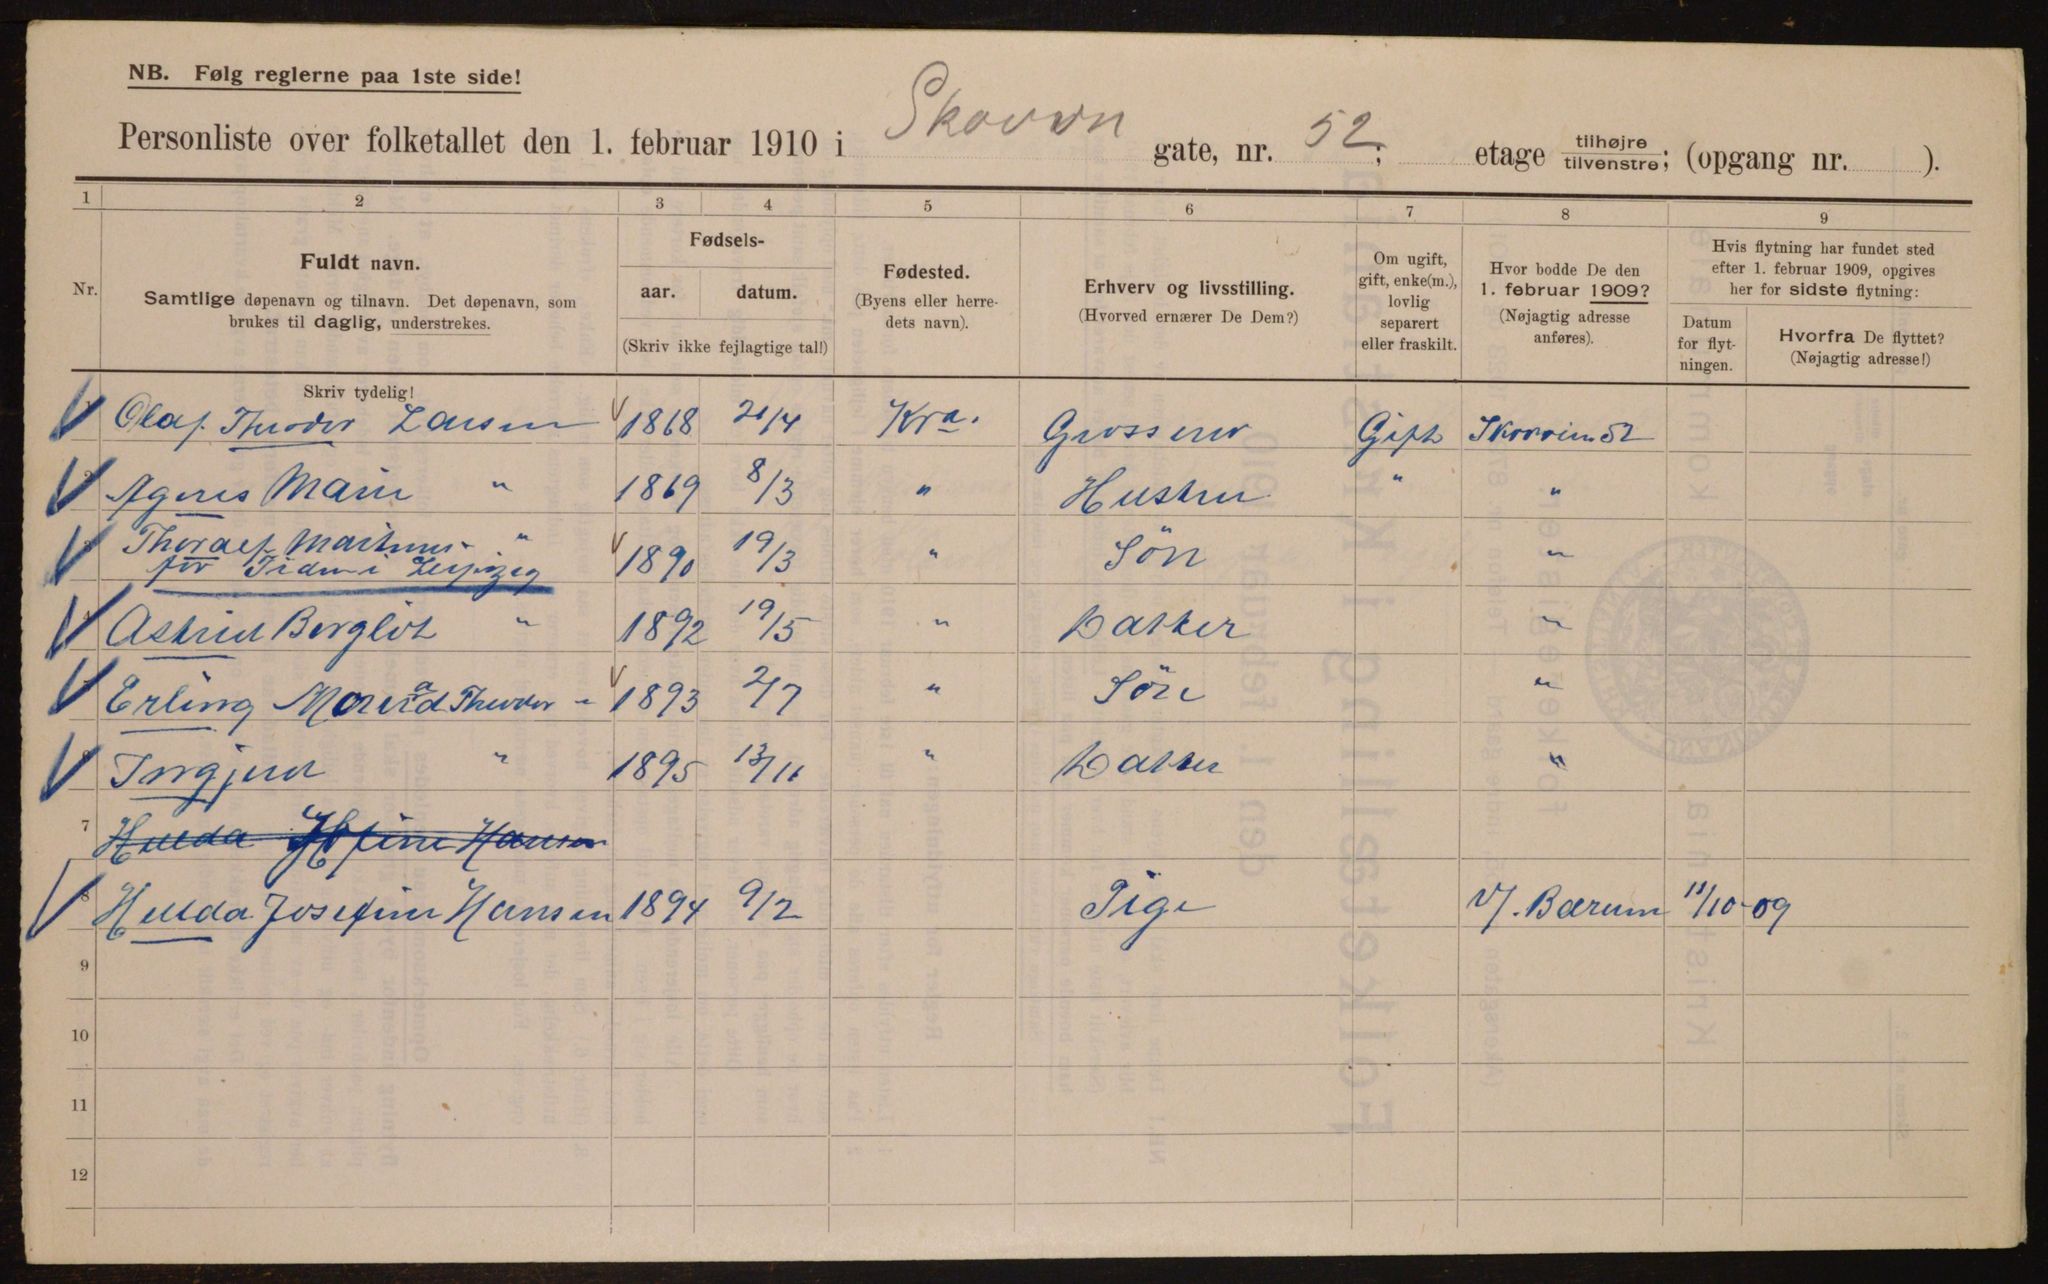 NB. Følg reglerne paa 1ste side!
Personliste over folketallet den 1. februar 1910 i Skovvn gate, nr. 52; etage tilhøjre tilvenstre; (opgang nr. ).
1 2 3 4 5 6 7 8 9
Nr.
Fuldt navn.
Samtlige døpenavn og tilnavn. Det døpenavn, som
brukes til daglig, understrekes.
Skriv tydelig!
Fødsels-
aar. datum.
(Skriv ikke fejlagtige tal!)
Fødested.
(Byens eller herre-
dets navn).
Erhverv og livsstilling.
(Hvorved ernærer De Dem?)
Om ugift,
gift, enke(m.),
lovlig
separert
eller fraskilt.
Hvor bodde De den
1. februar 1909?
(Nøjagtig adresse
anføres).
Hvis flytning har fundet sted
efter 1. februar 1909, opgives
her for sidste flytning:
Datum
for flyt-
ningen.
Hvorfra De flyttet?
(Nøjagtig adresse!)
1 Olaf Theodor Larsen 1868 21/4 Kra. Grosserer Gift Skovvin 52
2 Agnes Marie " 1869 8/3 " Hustru " "
3 Thoralf " 1890 19/3 " Sön "
for Tiden i Leipzig
4 Astrid Bergliot " 1892 19/5 " Datter "
5 Erling Theodor " 1893 2/7 " Sön "
6 Ingjerd " 1895 13/11 " Datter "
7 Hulda Hansen
8 Hulda Josefine Hansen 1894 9/2 Pige V/. Bærum 11/10-09
9
10
11
12